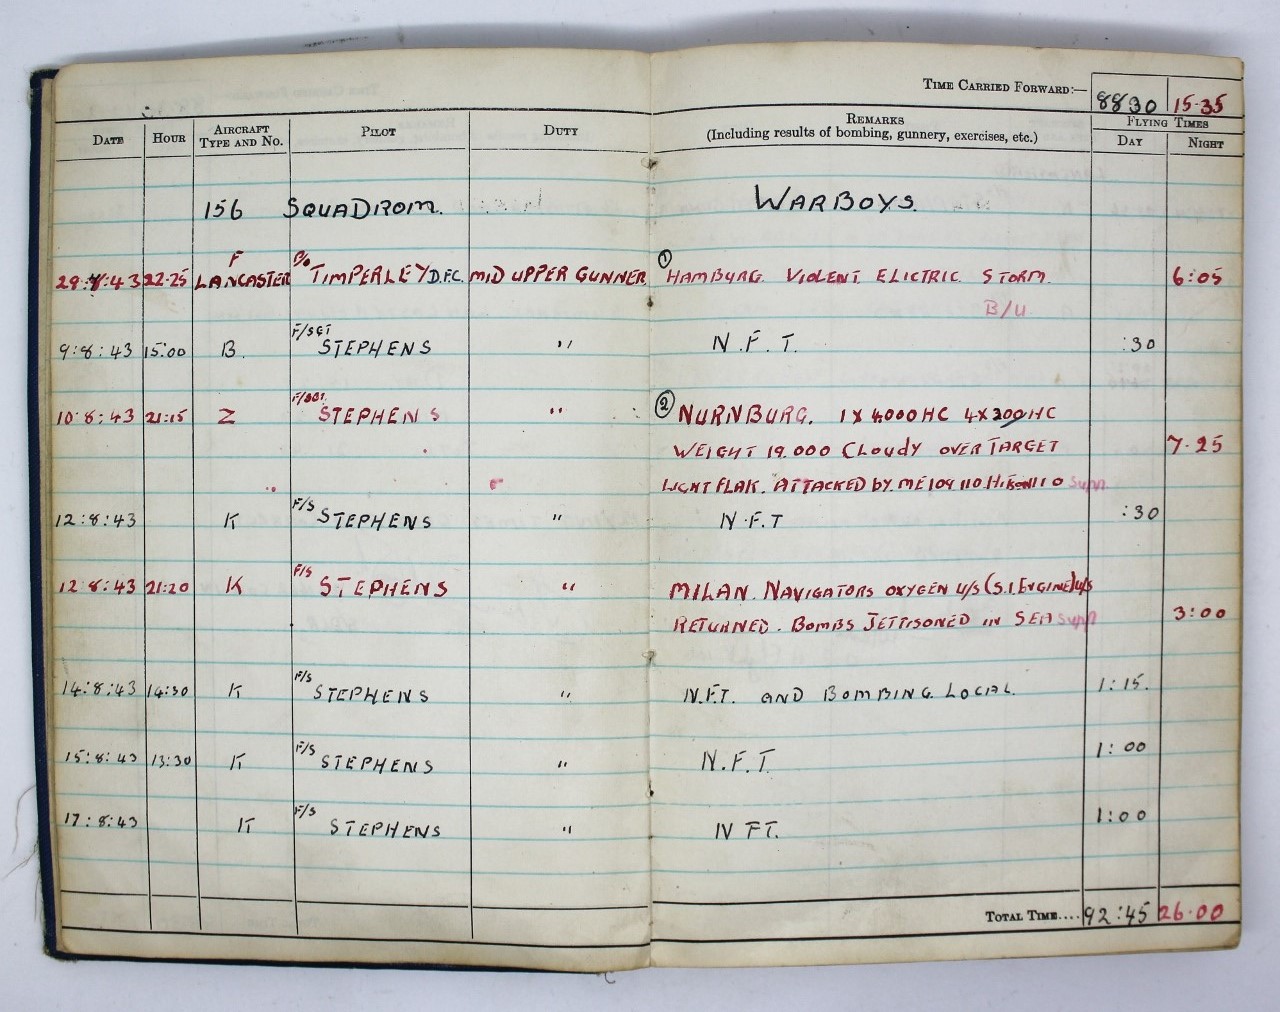 TIME CARRIED FORWARD:— 8830 15-35
DATE HOUR AIRCRAFT TYPE AND NO. PILOT DUTY REMARKS (Including results of bombing, gunnery, exercises, etc.) FLYING TIMES DAY NIGHT
156 SQUADROM. WARBOYS.
F
LANCASTER P/O TIMPERLEY D.F.C. MID UPPER GUNNER ① HAMBURG. VIOLENT ELICTRIC STORM. 6:05
22-25
B/U
9:8:43 15:00 B. F/SGT STEPHENS " N.F.T. :30
10:8:43 21:15 Z F/SGT STEPHENS " ② NURNBURG. 1X4000HC 4X HC
WEIGHT 19.000 CLOUDY OVER TARGET 7-25
LIGHT FLAK. ATTACKED BY. ME109 110 Supp.
12:8:43 K F/S STEPHENS " N.F.T :30
12:8:43 21:20 K F/S STEPHENS " MILAN. NAVIGATORS OXYGEN U/S (S.I.ENGINE) U/S
RETURNED. BOMBS JETTISONED IN SEA Supp 3:00
14:8:43 14:30 K F/S STEPHENS " N.F.T. AND BOMBING. LOCAL. 1:15.
15:8:43 13:30 K F/S STEPHENS " N.F.T. 1:00
17:8:43 K F/S STEPHENS " N FT. 1:00
TOTAL TIME.... 92:45 26-00